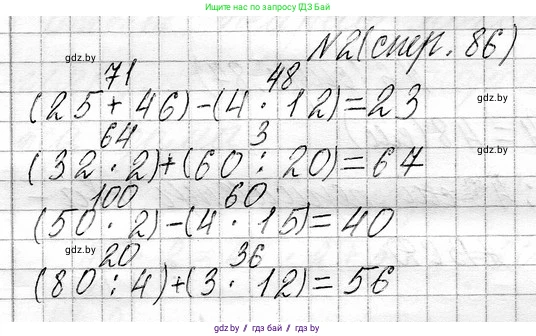 Ищите нас по запросу ГДЗ Бай
N2(стр. 86)
gdz.by
71 48
(25 + 46) - (4 · 12) = 23
gdz.by
64 3
(32 · 2) + (60 : 20) = 67
gdz.by
100 60
(50 · 2) - (4 · 15) = 40
gdz.by
20 36
(80 : 4) + (3 · 12) = 56
gdz.by / гдз бай / gdz.by / гдз бай